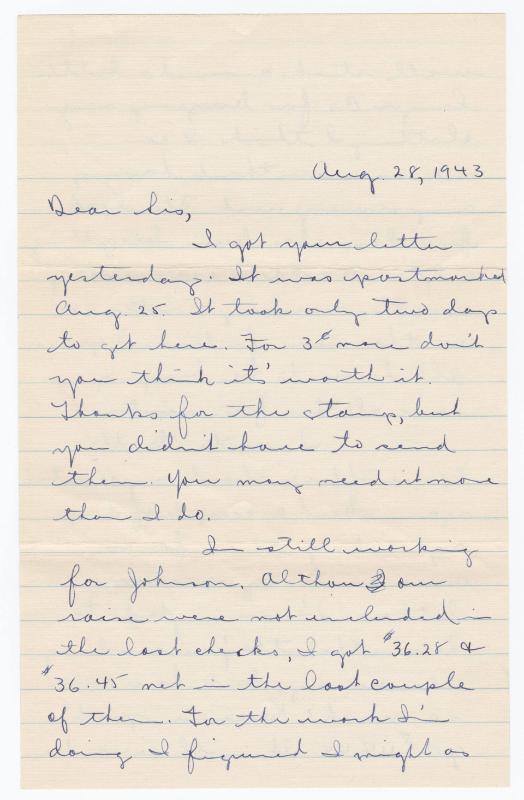 Aug. 28, 1943
Dear Sis,
I got your letter
yesterday. It was postmarked
Aug. 25. It took only two days
to get here. For 3¢ more don't
you think it's worth it.
Thanks for the stamp, but
you didn't have to send
them. You may need it more
than I do.
I'm still working
for Johnson. Althou our
raise were not included in
the last checks, I got $36.28 &
$36.45 net in the last couple
of them. For the work I'm
doing I figured I might as